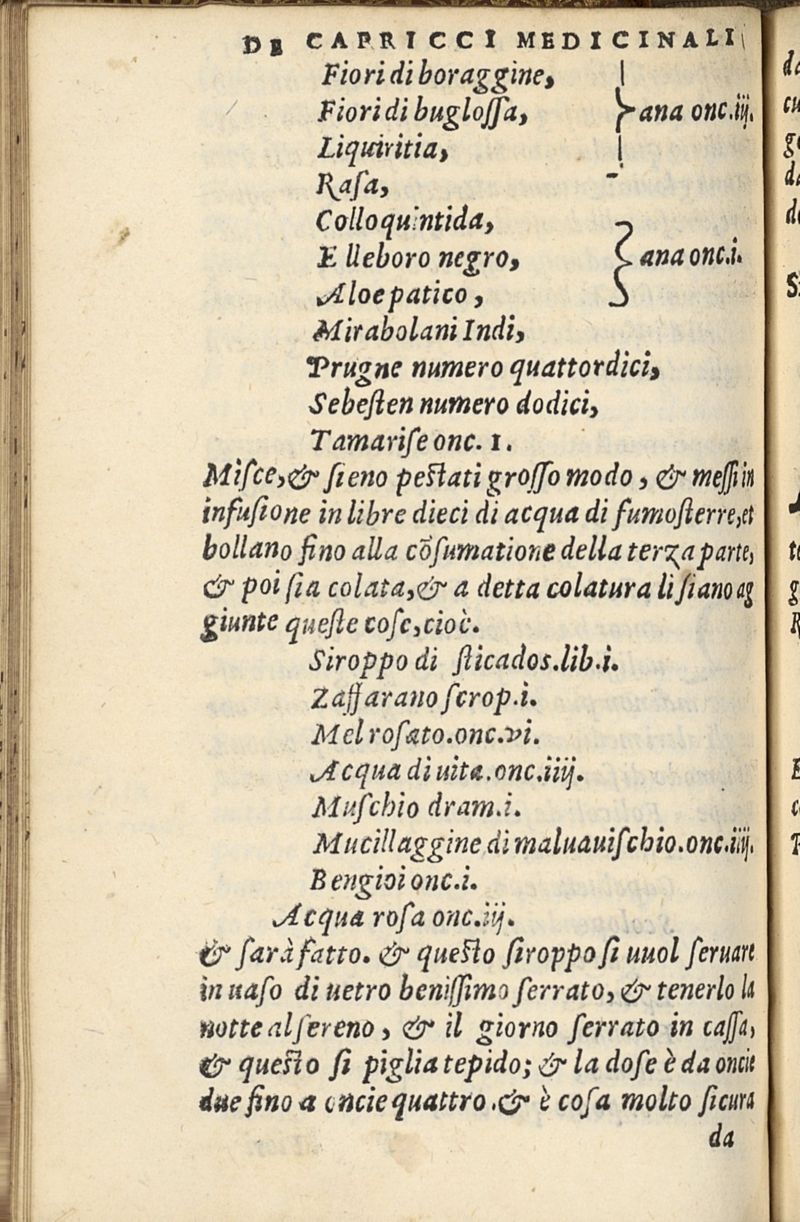 DE CAPRICCI MEDICINALI
Fiori di boraggine,
Fiori di bugloſſa, ana onc.iij.
Liquiritia,
Raſa,
Colloquintida,
Elleboro negro, ana onc.i.
Aloe patico,
Mirabolani Indi,
Prugne numero quattordici,
Sebeſten numero dodici,
Tamariſe onc. 1.
Miſce,& ſieno peſtati groſſo modo, & meſſi in
infuſione in libre dieci di acqua di fumoſterre,et
bollano fino alla cõſumatione della terza parte,
& poi ſia colata,& a detta colatura li ſiano ag
giunte queſte coſe,cioè.
Siroppo di ſticados.lib.i.
Zaffarano ſcrop.i.
Mel roſato.onc.vi.
Acqua di uita.onc.iiij.
Muſchio dram.i.
Mucillaggine di maluauiſchio.onc.iiij.
Bengioi onc.i.
Acqua roſa onc.iij.
& ſarà fatto. & queſto ſiroppo ſi uuol ſeruare
in uaſo di uetro beniſſimo ſerrato, & tenerlo la
notte al ſereno, & il giorno ſerrato in caſſa,
& queſto ſi piglia tepido; & la doſe è da oncie
due fino a oncie quattro.& è coſa molto ſicura
da